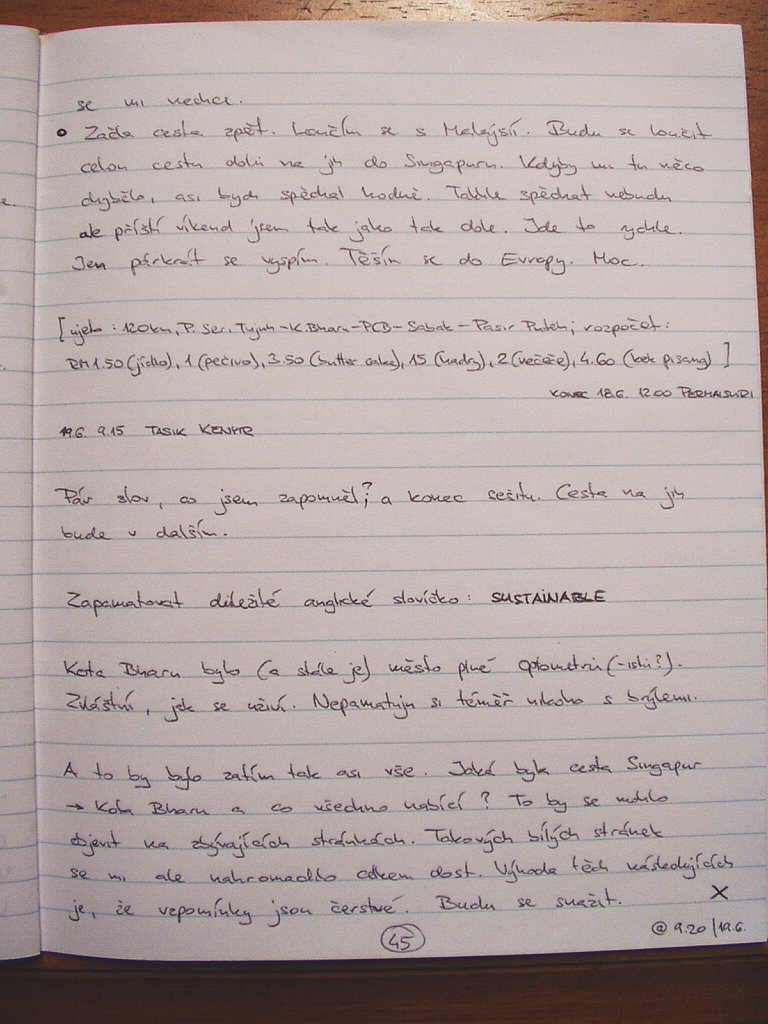 se mi nechce.
• Začla cesta zpět. Loučím se s Malajsií. Budu se loučit
celou cestu dolů na jih do Singapuru. Kdyby mi tu něco
chybělo, asi bych spěchal hodně. Takhle spěchat nebudu
ale příští víkend jsem tak jako tak dole. Jde to rychle.
Jen párkrát se vyspím. Těším se do Evropy. Moc.
[ujeto: 120km, P. Seri Tujuh-K.Bharu-PCB-Sabak-Pasir Puteh; rozpočet:
RM1.50(jídlo), 1(pečivo), 3.50(butter cake), 15(hadry), 2(večeře), 4.60(kek pisang)]
KONEC 18.6. 12.00 PERMAISURI
19.6. 9.15 TASIK KENYIR
Pár slov, co jsem zapomněl, a konec sešitu. Cesta na jih
?
bude v dalším.
Zapamatovat důležité anglické slovíčko: SUSTAINABLE
Kota Bharu bylo (a stále je) město plné optometrů(-istů?).
Zvláštní, jak se uživí. Nepamatuju si téměř nikoho s brýlemi.
A to by bylo zatím tak asi vše. Jaká byla cesta Singapur
→ Kota Bharu a co všechno nabízí? To by se mohlo
objevit na zbývajících stránkách. Takových bílých stránek
se mi ale nahromadilo celkem dost. Výhoda těch následujících
je, že vzpomínky jsou čerstvé. Budu se snažit. X
45
@ 9.20/19.6.